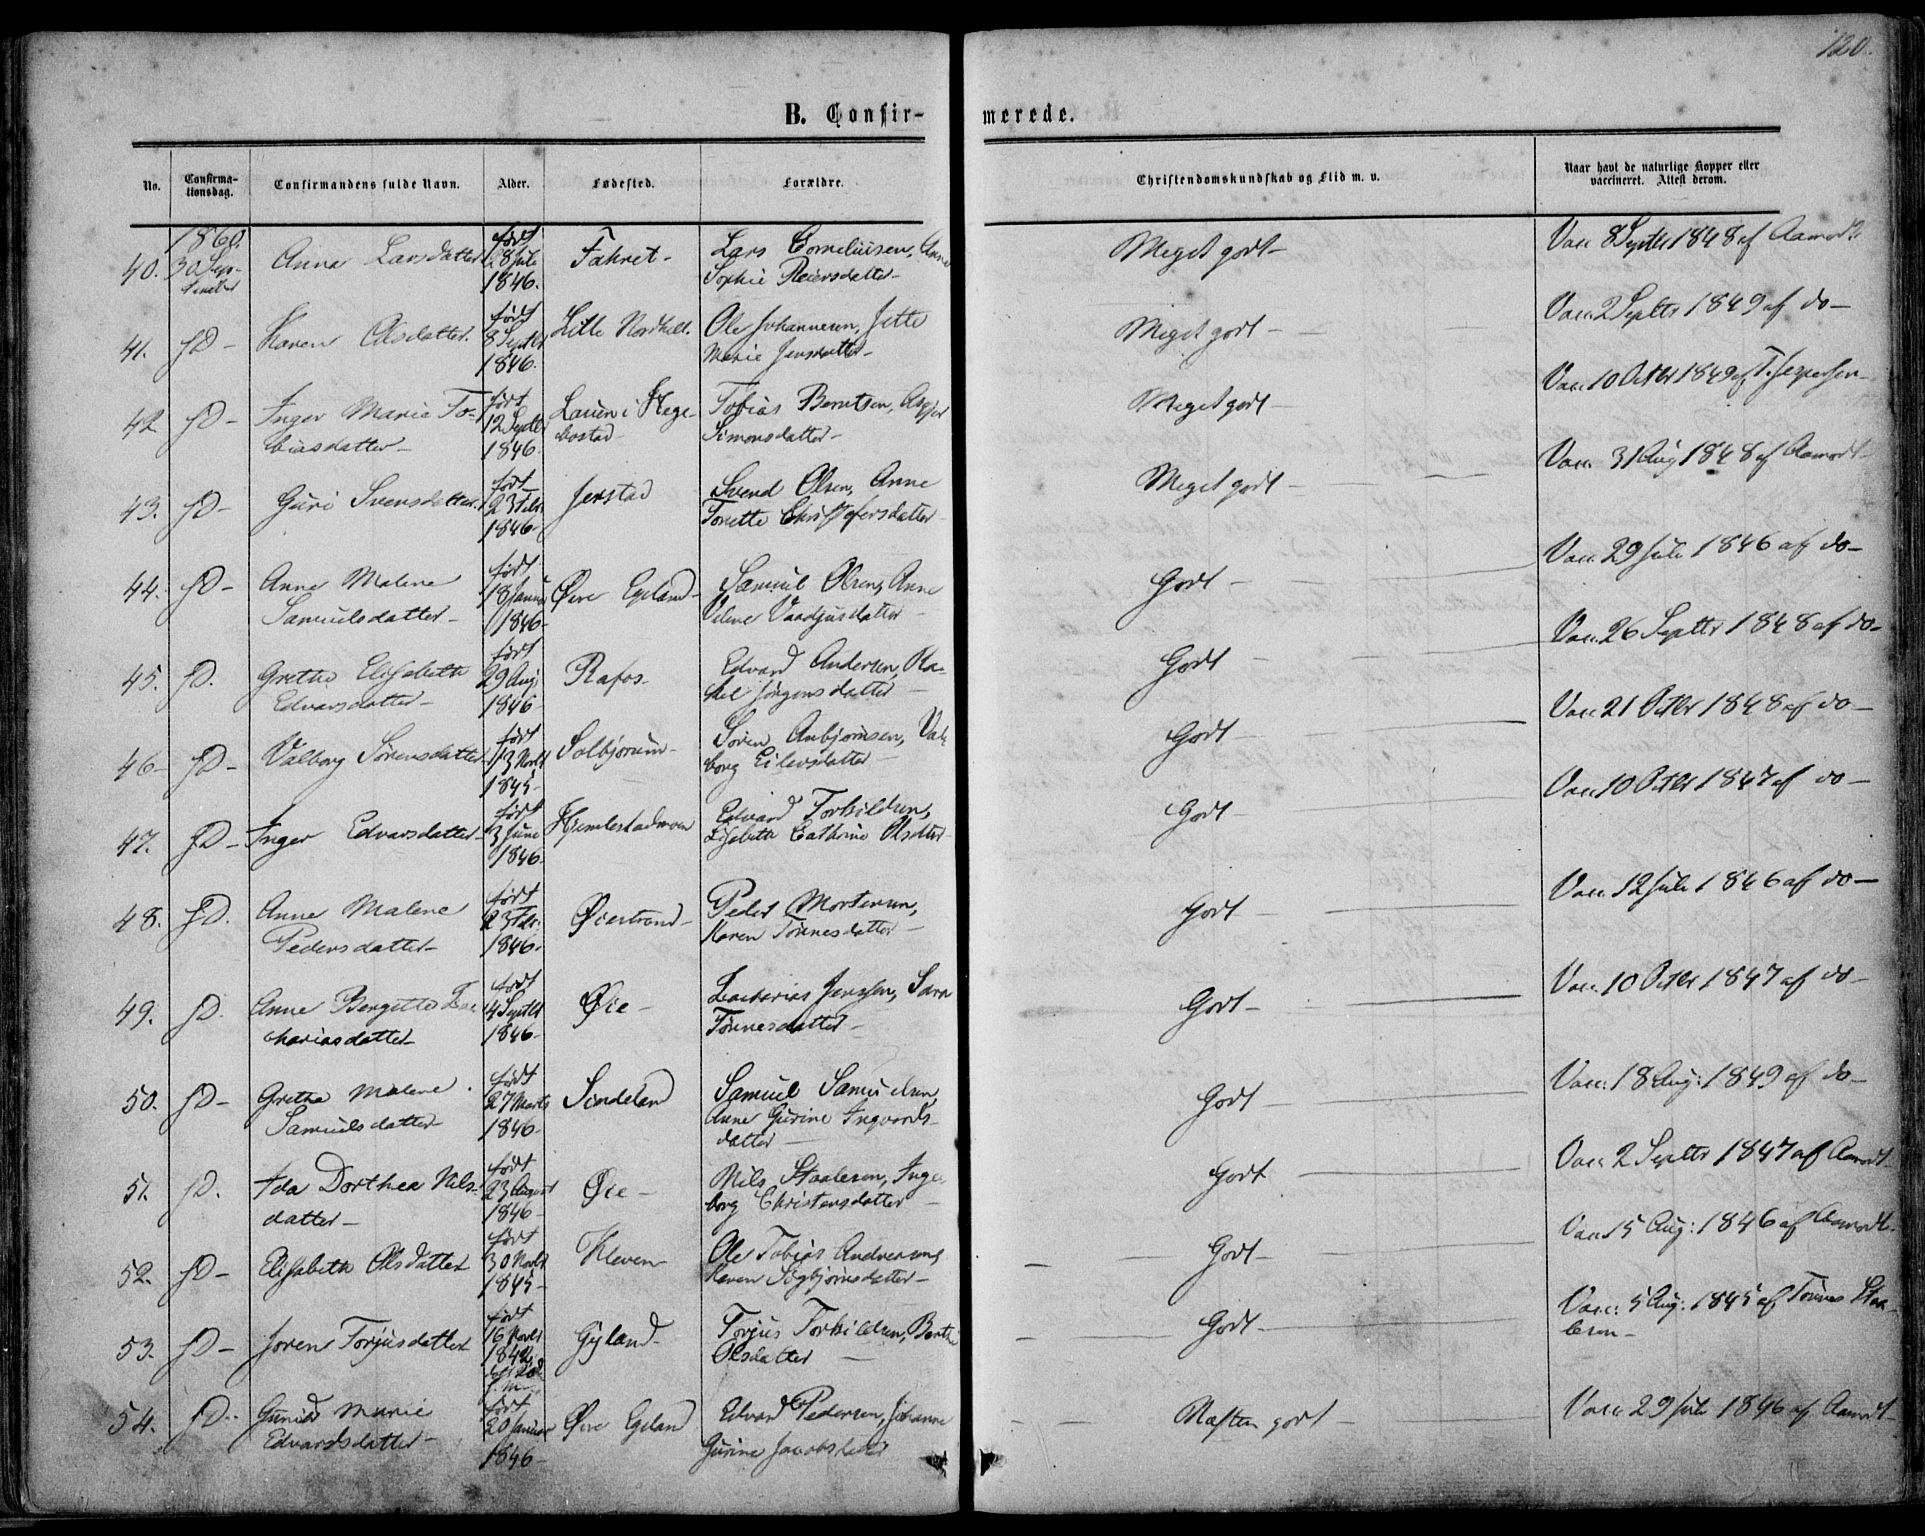 120.
B. Confirmerede.
No. Confirmationsdag. Confirmandens fulde Navn. Alder. Fødested. Forældre. Christendomskundskab og Flid m. v. Naar havt de naturlige Kopper eller vaccineret. Attest derom.
1860. født
40. 30 Sep- Anna Larsdatter 28 Juli Fahret- Lars Corneliusen, Anne Meget godt- Vacc 8 Septbr 1848 af Aamodt
tember 1846. Sophie Reiersdatter-
født
41. fD- Karen Olsdatter. 8 Septbr Lille Nordhell. Ole Johannesen, Jette Meget godt- Vacc 2 Septbr 1849 af do-
1846. Marie Jensdatter-
født
42 fD- Inger Marie To- 12 Septbr Lauen i Hege- Tobias Berntsen, Meget godt- Vacc 10 Octbr 1849 af T. Jespersen-
biasdatter- 1846. bostad- Simonsdatter-
født
43. fD- Guri Svensdatter. 23 Febr. Jerstad Svend Olsen, Anne Meget godt- Vacc 31 Aug 1848 af Aamodt-
1846- Tonette Christofersdatter-
født
44. fD- Anne Malene 18 Januar Øvre Egeland- Samuel Olsen, Anne Godt- Vacc 29 Juli 1846 af do-
Samuelsdatter- 1846- Velene Vaadjusdatter
født
45. fD. Grethe Elisabeth 29 Aug Rafos- Edvard Andersen, Ra- Godt- Vacc 26 Septbr 1848 af do-
Edvarsdatter- 1846- chel Jørgensdatter
født
46- fD- Valborg Sørensdatter 13 Novbr Solbjørum- Søren Anbjørnsen, Val- Godt- Vacc 21 Octbr 1848 af do-
1845- borg Eilevsdatter
født
47. fD- Inger Edvarsdatter- 3 June Hjemlestadmoen Edvard Torkildsen, Godt- Vacc 10 Octbr 1847 af do-
1846- Elisabeth Cathrine Olsdatter
født
48. fD. Anne Malene 23 Febr: Øiestrand- Peder Mortensen, Godt- Vacc 12 Juli 1846 af do-
Pedersdatter- 1846- Karen Tønnesdatter-
født
49. fD. Anne Bergitte Zac- 4 Septbr Øie- Zacharias Jenssen, Sara Godt- Vacc 10 Octbr 1847 af do-
chariasdatter- 1846- Tønnesdatter-
født
50. fD- Grethe Malene 27 Marts Sindeland Samuel Samuelsen, Godt- Vacc: 18 Aug: 1849 af do-
Samuelsdatter 1846- Anne Gurine Ingvards-
datter-
født
51. fD. Ida Dorthea Nils- 23 August Øie- Nils Staalesen, Inge- Godt Vacc 2 Septbr 1847 af Aamodt-
datter- 1846- borg Christensdatter-
født
52. fD- Elisabeth Olsdatter 30 Novbr Kleven- Ole Tobias Andersen, Godt- Vacc 15 Aug: 1846 af Aamodt.
1845- Karen Sigbjørnsdatter-
født
53. fD- Joren Torjusdatter 16 Novbr Gyland- Torjus Torkildsen, Berthe Godt- Vacc: 5 Aug: 1845 af Tønnes Staa-
Olsdatter- lesen-
født
54. fD- Gunild Marie 20 Januar Øvre Egeland Edvard Pedersen, Johanne Næsten godt- Vacc 29 Juli 1846 af Aamodt-
Edvardsdatter- 1846- Gurine Jacobsdatter